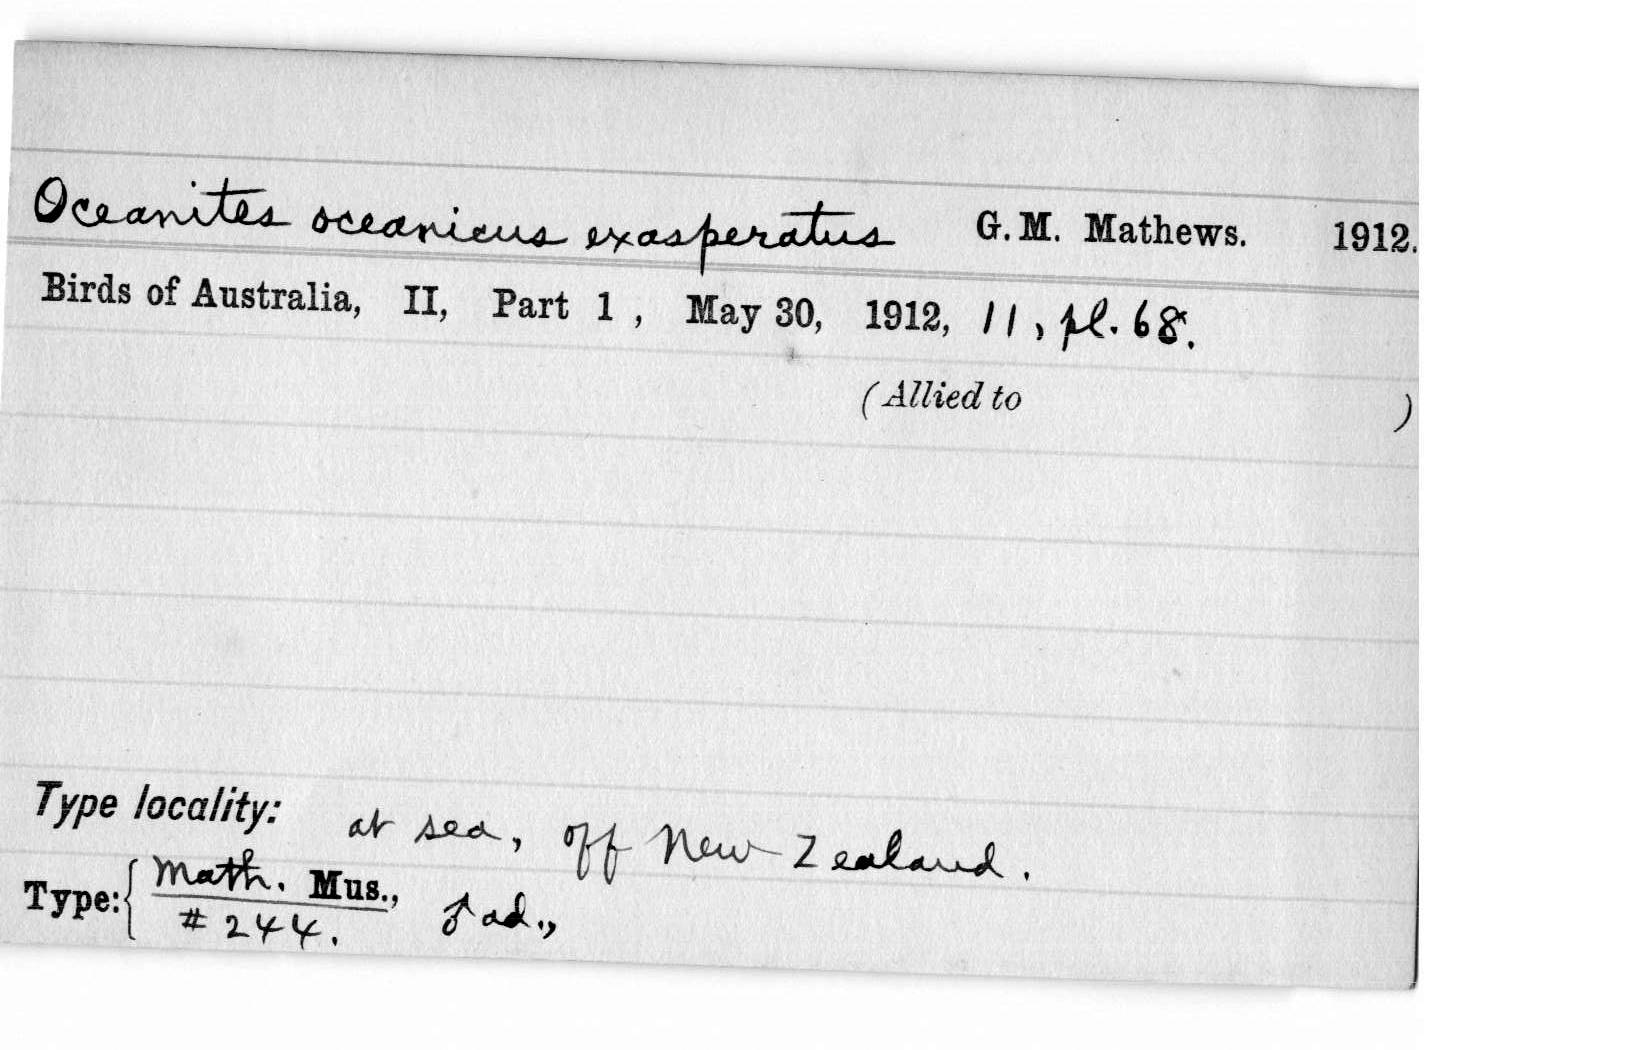 Oceanites oceanicus exasperatus G. M. Mathews. 1912.
Birds of Australia, II, Part 1 , May 30, 1912, 11, pl. 68.
(Allied to )
Type locality: at sea, off New Zealand.
Type: { Math. Mus., ♂ ad.,
# 244.